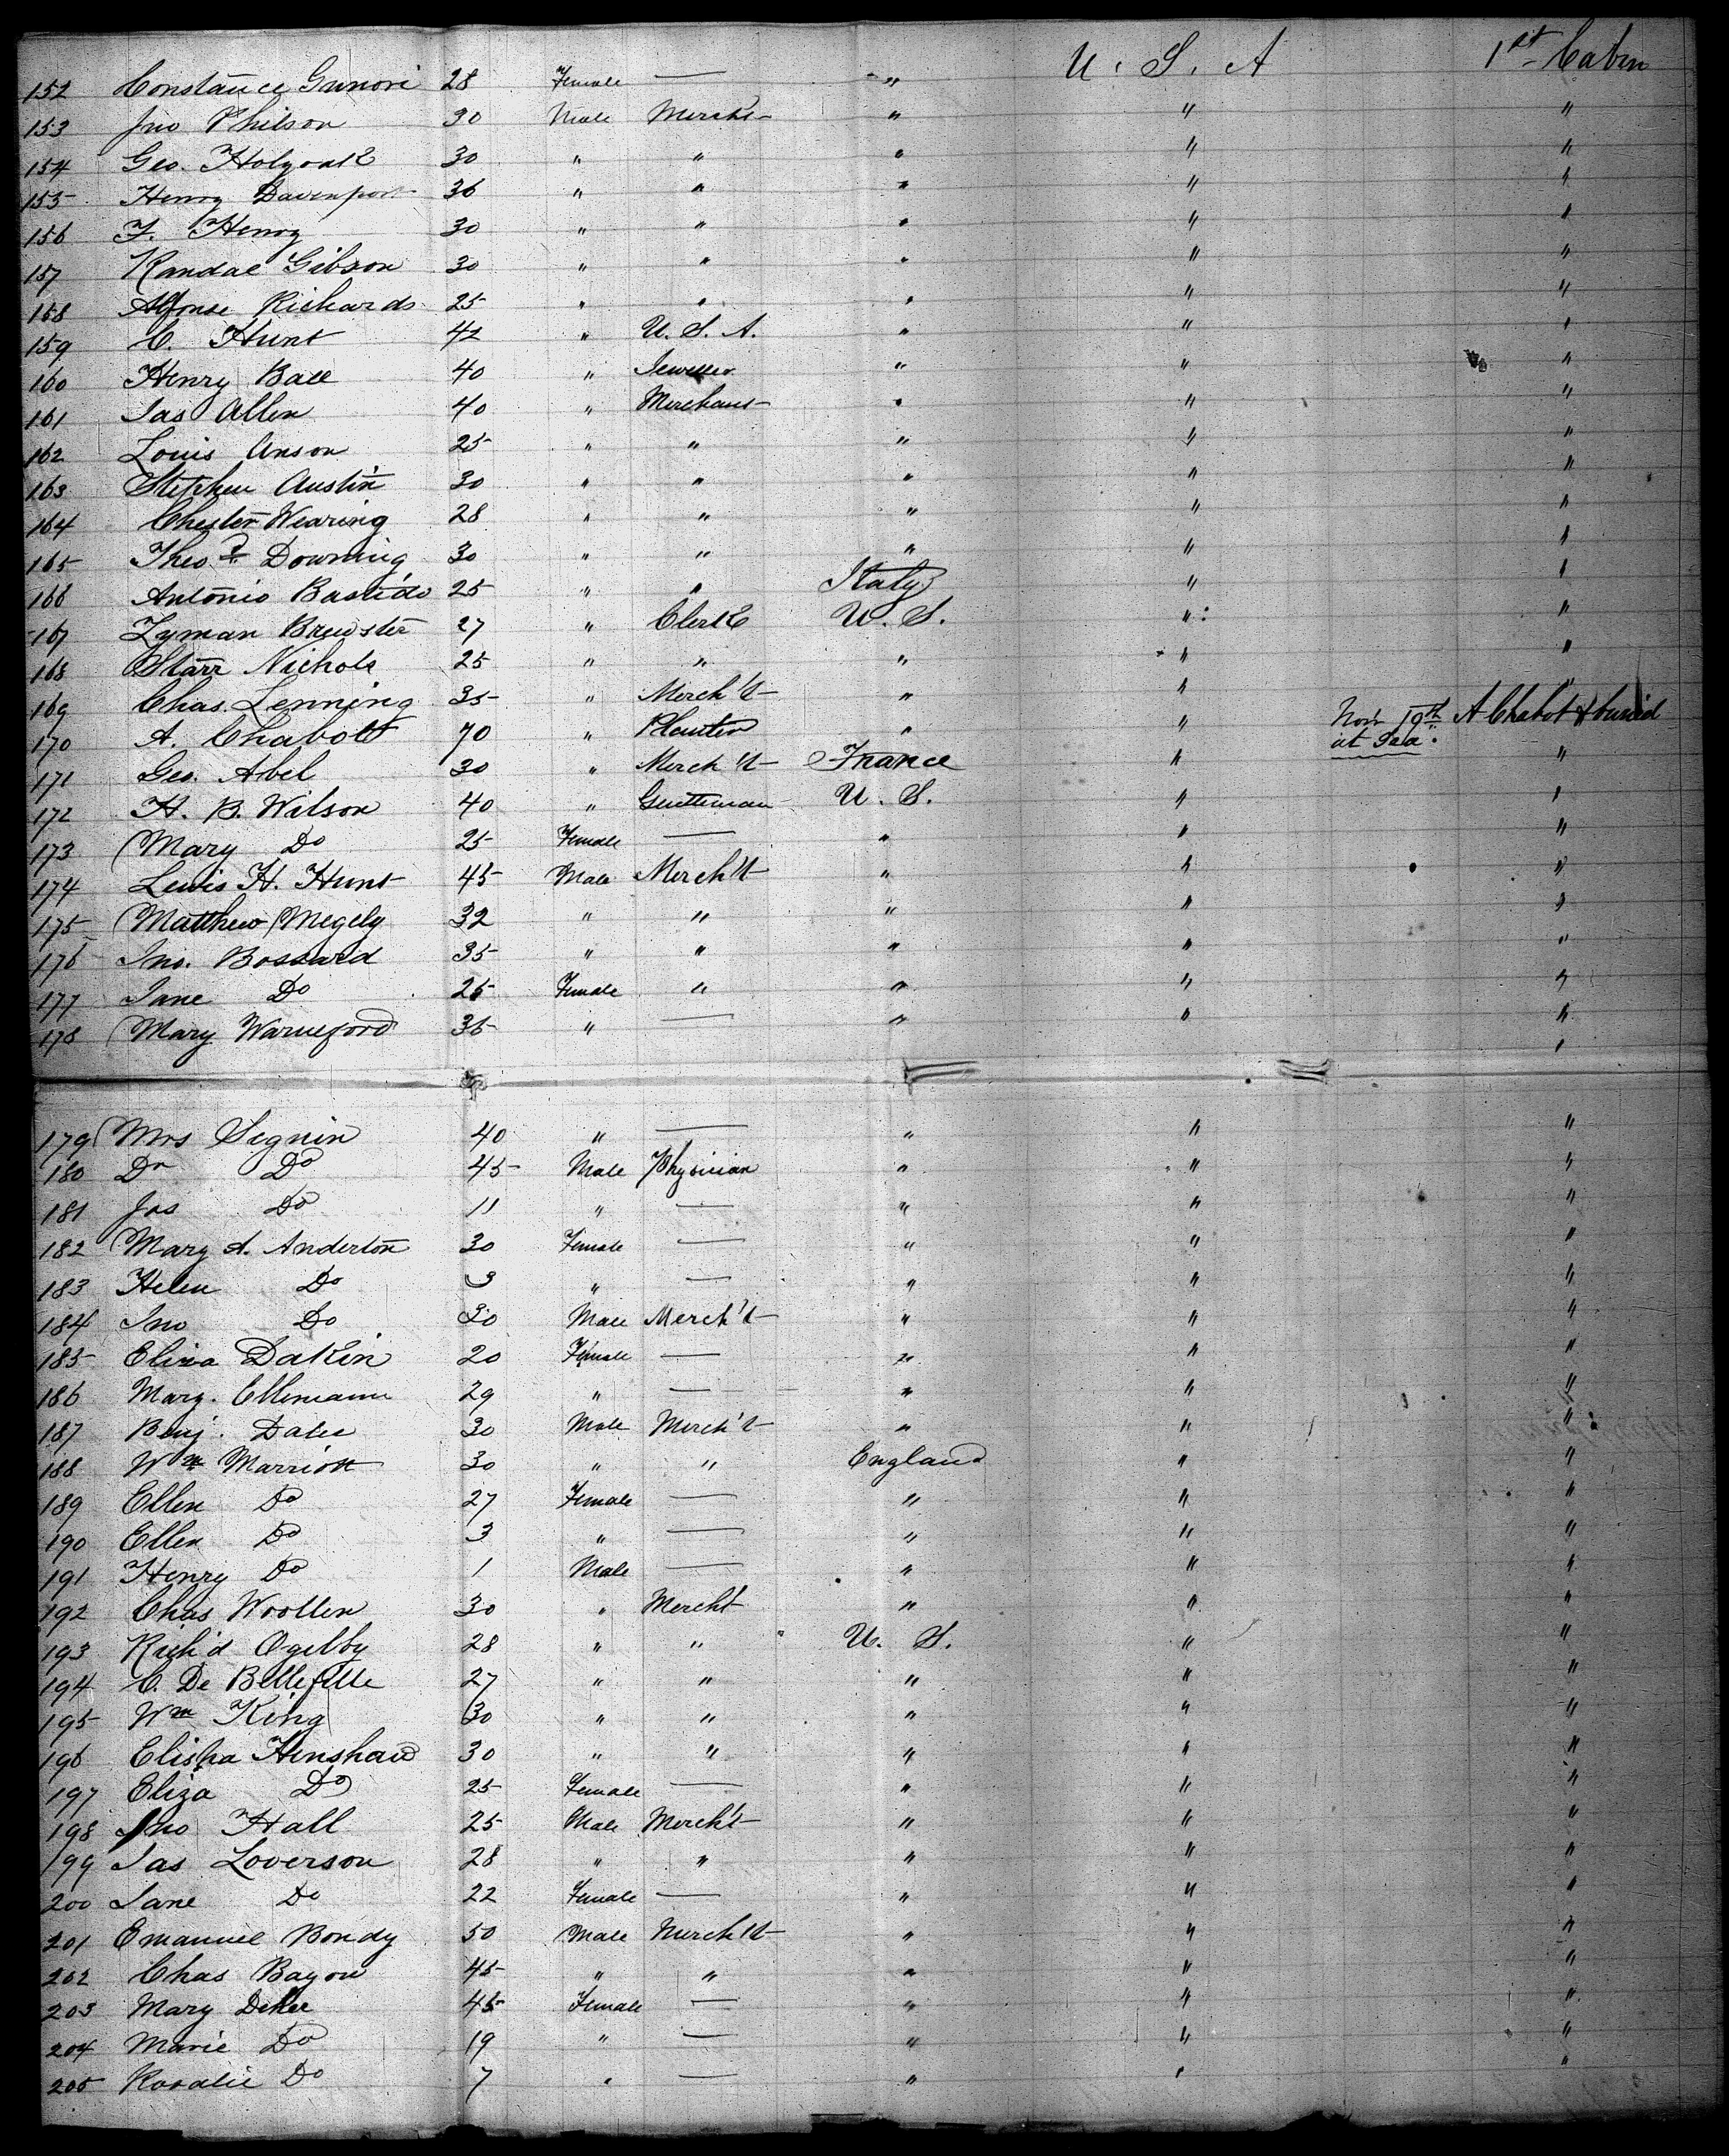 U. S. A 1st Cabin
152 Constance Gunori 28 Female — "
153 Jno Philson 30 Male Mercht " " "
154 Geo. Holyoak 30 " " " " "
155 Henry Davenport 36 " " " " "
156 F. Henry 30 " " " " "
157 Randal Gibson 30 " " " " "
158 Alfonse Richards 25 " " " " "
159 C. Hunt 42 " U. S. A. " " "
160 Henry Ball 40 " Jeweller " " "
161 Jas Allen 40 " Merchant " " "
162 Louis Anson 25 " " " " "
163 Stephen Austin 30 " " " " "
164 Chester Wearing 28 " " " " "
165 Theo Downing 30 " " " " "
166 Antonio Bastido 25 " " Italy " "
167 Lyman Brewster 27 " Clerk U. S. " "
168 Starr Nichols 25 " " " " "
169 Chas. Lenning 35 " Merch't " " "
170 A. Chabot 70 " Planter " " Nov 19th A Chabot buried
at Sea.
171 Geo. Abel 30 " Merch't France " "
172 H. B. Wilson 40 " Gentleman U. S. " "
173 Mary Do 25 Female — " " "
174 Lewis H. Hunt 45 Male Merch't " " "
175 Matthew Megely 32 " " " " "
176 Jno. Bossard 35 " " " " "
177 Jane Do 25 Female " " " "
178 Mary Warneford 35 " — " " "
179 Mrs Segnin 40 " — " " "
180 Dr Do 45 Male Physician " " "
181 Jos Do 11 " — " " "
182 Mary A. Anderton 30 Female — " " "
183 Helen Do 3 " — " " "
184 Jno Do 30 Male Merch't " " "
185 Eliza Dakin 20 Female — " " "
186 Marg. Ellemann 29 " — " " "
187 Benj. Dales 30 Male Merch't " " "
188 Wm Marriott 30 " " England " "
189 Ellen Do 27 Female — " " "
190 Ellen Do 3 " — " " "
191 Henry Do 1 Male — " " "
192 Chas Woollen 30 " Mercht " " "
193 Rich'd Ogilby 28 " " U. S. " "
194 C. De Bellefille 27 " " " " "
195 Wm King 30 " " " " "
196 Elisha Henshaw 30 " " " " "
197 Eliza Do 25 Female — " " "
198 Jno Hall 25 Male Mercht " " "
199 Jas Loverson 28 " " " " "
200 Jane Do 22 Female — " " "
201 Emanuel Bondy 50 Male Merch't " " "
202 Chas Bayou 45 " " " " "
203 Mary Deker 45 Female — " " "
204 Marie Do 19 " — " " "
205 Rosalie Do 7 " — " " "